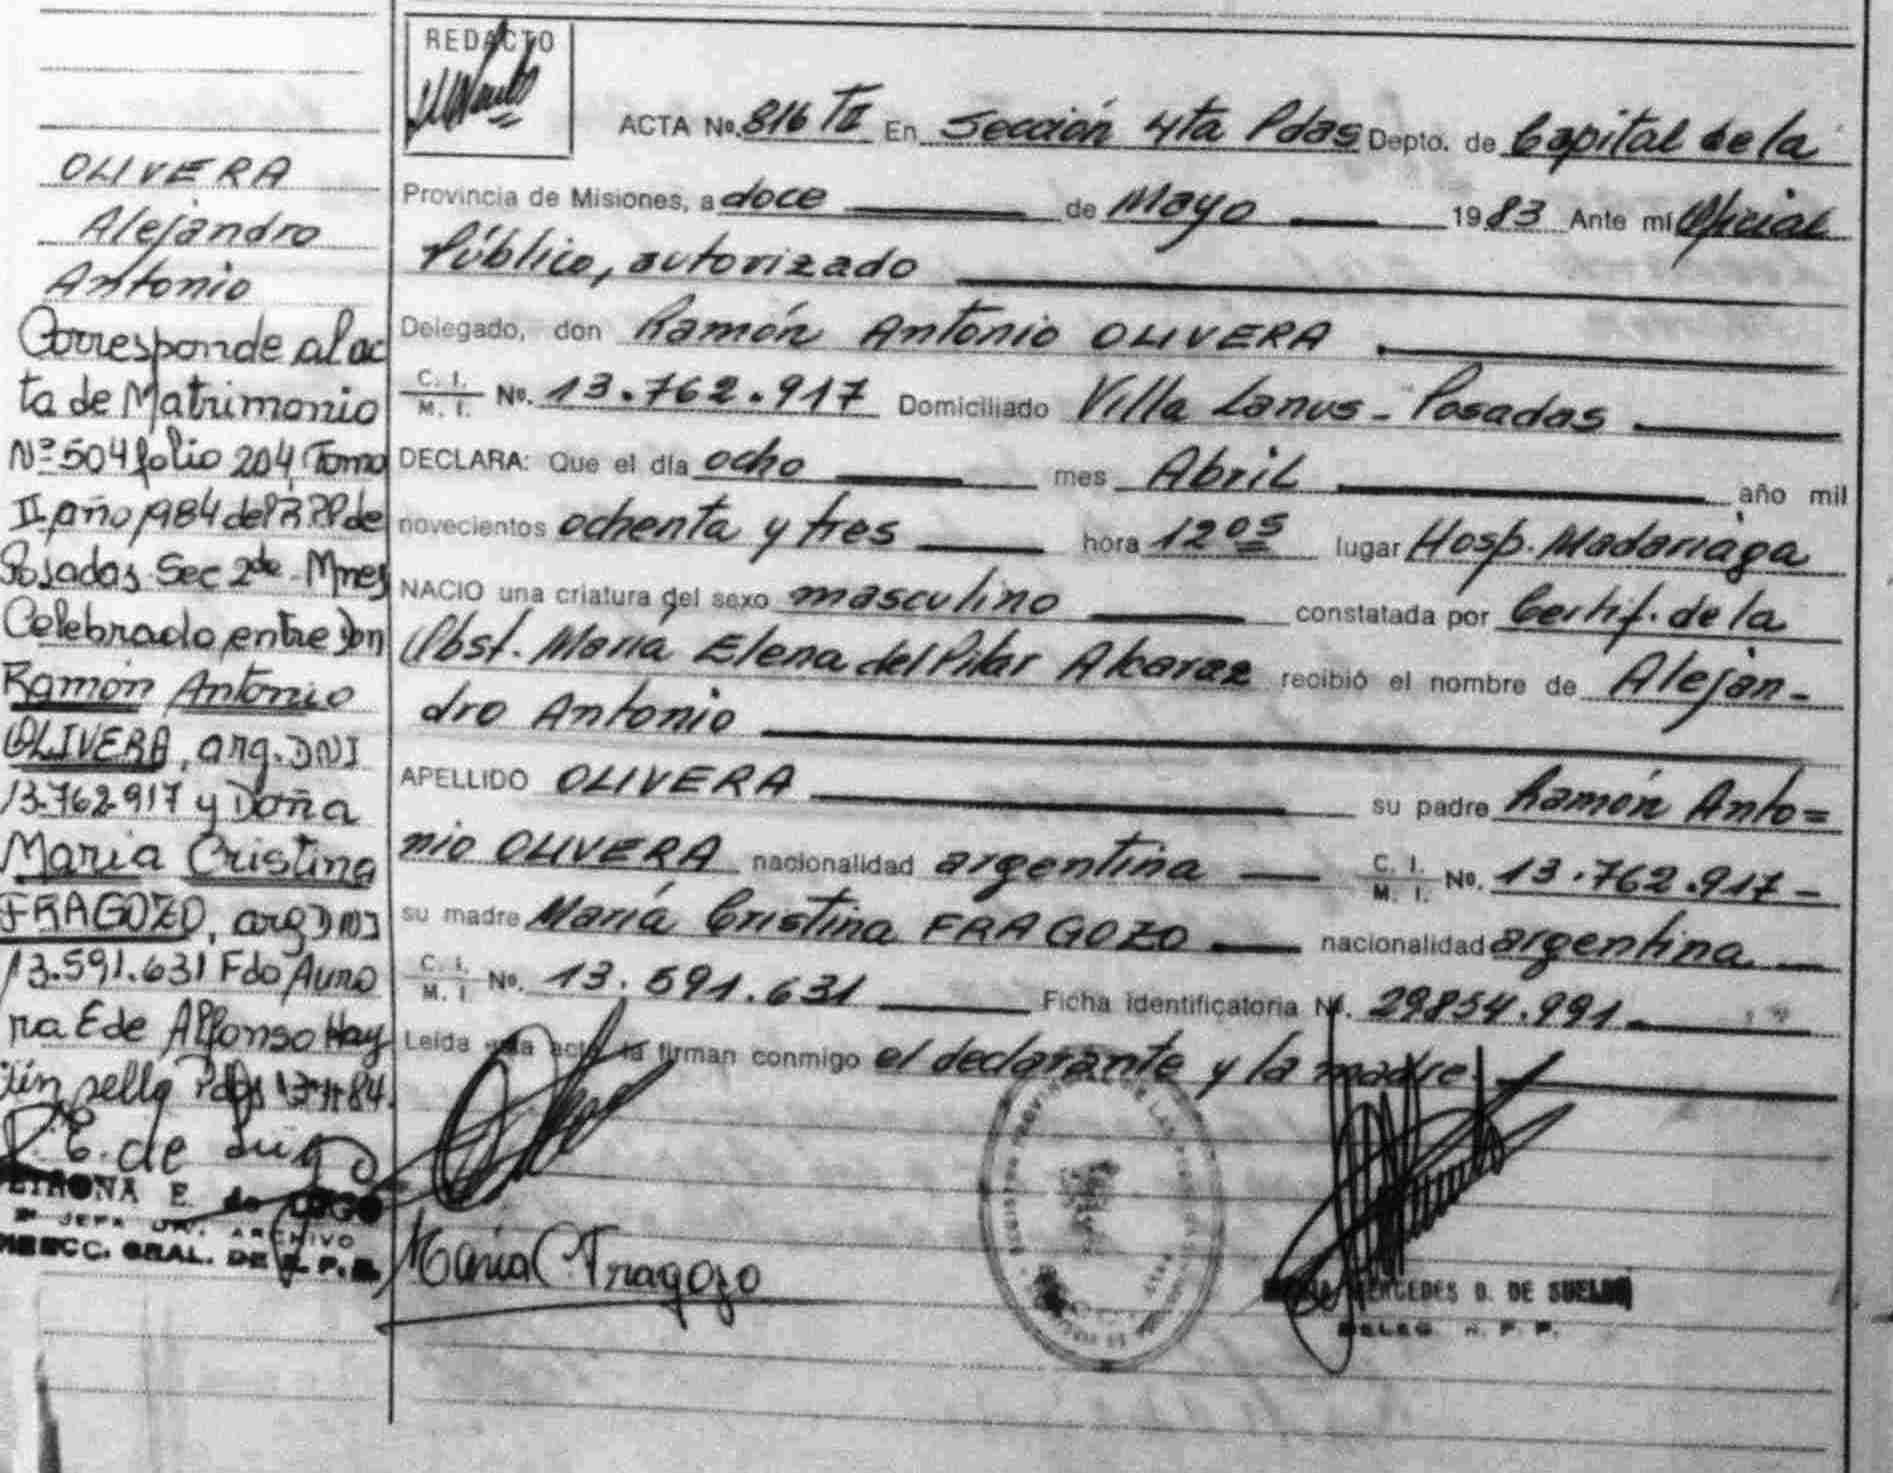 REDACTO
ACTA Nº. 816 TII En Sección 4ta Pdas Depto. de Capital de la
Provincia de Misiones, a doce de Mayo 1983 Ante mí Oficial
Público, autorizado
Delegado, don Ramón Antonio OLIVERA
C. I. M. I. Nº. 13.762.917 Domiciliado Villa Lanus - Posadas
DECLARA: Que el día ocho mes Abril año mil
novecientos ochenta y tres hora 12 05 lugar Hosp. Madariaga
NACIO una criatura del sexo masculino constatada por Certif. de la
Obst. María Elena del Pilar Alcaraz recibió el nombre de Alejan-
dro Antonio
APELLIDO OLIVERA su padre Ramón Anto=
nio OLIVERA nacionalidad argentina C. I. M. I. Nº. 13.762.917-
su madre María Cristina FRAGOZO nacionalidad argentina
C. I. M. I. Nº. 13.591.631 Ficha identificatoria Nº. 29854.991
Leída esta acta la firman conmigo el declarante y la madre
María C. Fragozo
MERCEDES D. DE
DELEG. R. P. P.
OLIVERA
Alejandro
Antonio
Corresponde al ac
ta de Matrimonio
Nº 504 folio 204 Tomo
II año 1984 del R.P.P de
Posadas Sec 2da - Mnes
Celebrado entre Don
Ramón Antonio
OLIVERA, arg. DNI
13.762.917 y Doña
María Cristina
FRAGOZO, arg DNI
13.591.631 Fdo Auro
ra E de Alfonso Hay
un sello Pdas 84
P. E. de Lugo
PETRONA E. de LUGO
JEFA DIV. ARCHIVO
DIRECC. GRAL. DE R. P. P.